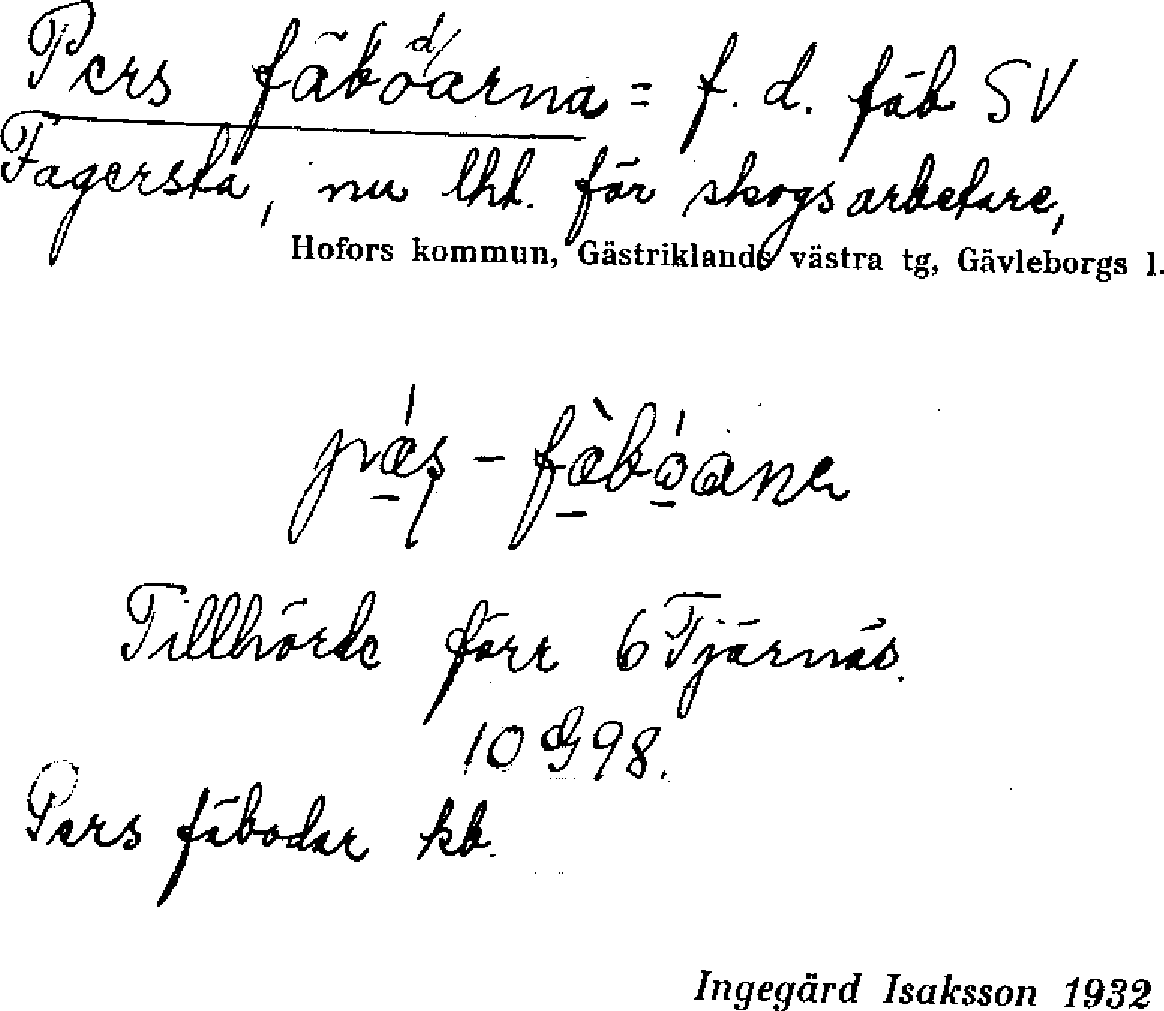 Pers fäbodarna = f. d. fäb SV
Fagersta, nu lht. för skogsarbetare,
Hofors kommun, Gästriklands västra tg, Gävleborgs l.
Tillhörde förr 6 Tjärnäs.
10 G 98.
Pers fäbodar kb.
Ingegärd Isaksson 1932